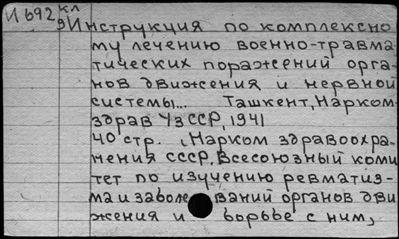 И692 кл
9 Инструкция по комплексно
му лечению военно-травма
тических поражений орга-
нов движения и нервной
системы... Ташкент, Нарком-
здрав УзССР, 1941
40 стр. (Нарком здравоохра-
нения СССР, Всесоюзный коми
тет по изучению ревматиз-
ма и заболеваний органов дви
жения и борьбе с ним,